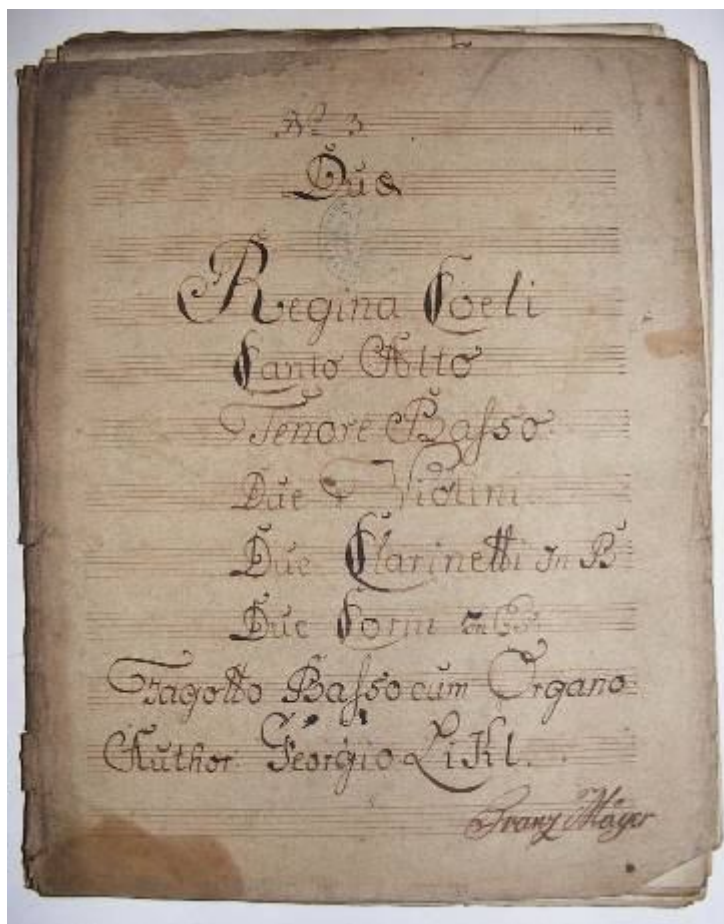 No 3
Due
Regina Coeli
Canto Alto
Tenore Basso
Due Violini
Due Clarinetti In B
Due Corni
Fagotto Basso cum Organo
Author Georgio Likl.
Franz Mayer